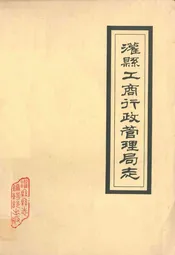 灌縣工商行政管理局志